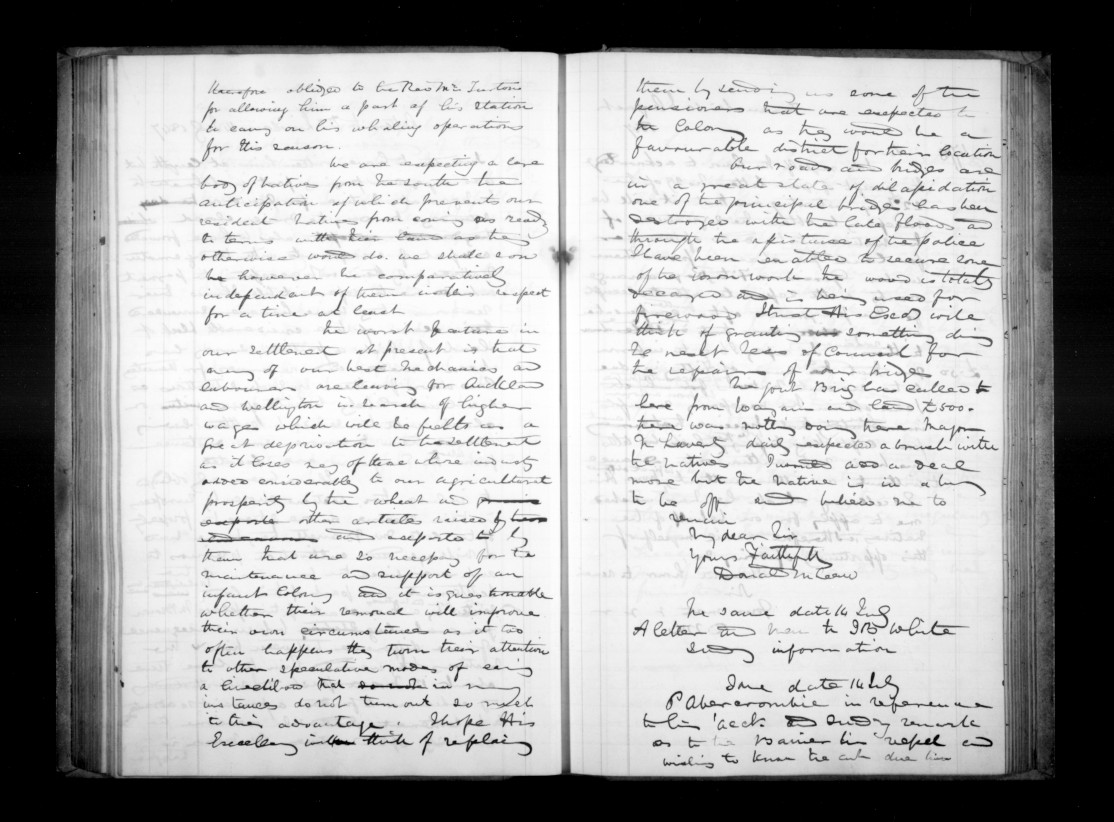 therefore obliged to the Rev Mr Turton
for allowing him a part of his station
to carry on his whaling operations
for this season.
We are expecting a large
body of Natives from the South the
anticipation of which prevents our
resident Natives from coming as ready
to terms with their land as they
otherwise would do. we shall soon
be however be comparatively
independent of them in this respect
for a time at least
The worst features in
our settlement at present is that
many of our best Mechanics and
labourers are leaving for Auckland
and Wellington in search of higher
wages which will be felt as a
great deprivation to the settlement
as it loses many of those whose industry
added considerably to our agricultural
prosperity by the wheat and
exports other articles raised by
and exported by
them that are so necessary for the
maintenance and support of an
infant Colony and it is questionable
whether their removal will improve
their own circumstances as it too
often happens they turn their attention
to other speculative modes of
a livelihood that in many
instances do not turn out so much
to their advantage. I hope His
Excellency will think of replacing
them by sending us some of the
pensioners that are expected in
the Colony as they would be a
favourable district for their location
Our roads and bridges are
in a great state of dilapidation
one of the principal bridges has been
destroyed with the late flood and
through the assistance of the police
I have been enabled to secure some
of the ironwork the wood is totally
decayed and is being used for
firewood I trust His Excy will
think of granting us something during
the next Sess of Council for
the repairs of our bridges
The Govt Brig has called
here from Wanganui and land £500.
there was nothing doing there Major
daily expected a brush with
the natives I would add a deal
more but the Native is in a hurry
to be off and believe me to
remain
My dear Sir
Yours Faithfully
Donald McLean
The same date 14 July
A letter and to J B White
Sundry information
Same date 14 July
P Abercrombie in reference
to his acct and sundry remark
as to the and
wishing to know the amt due him